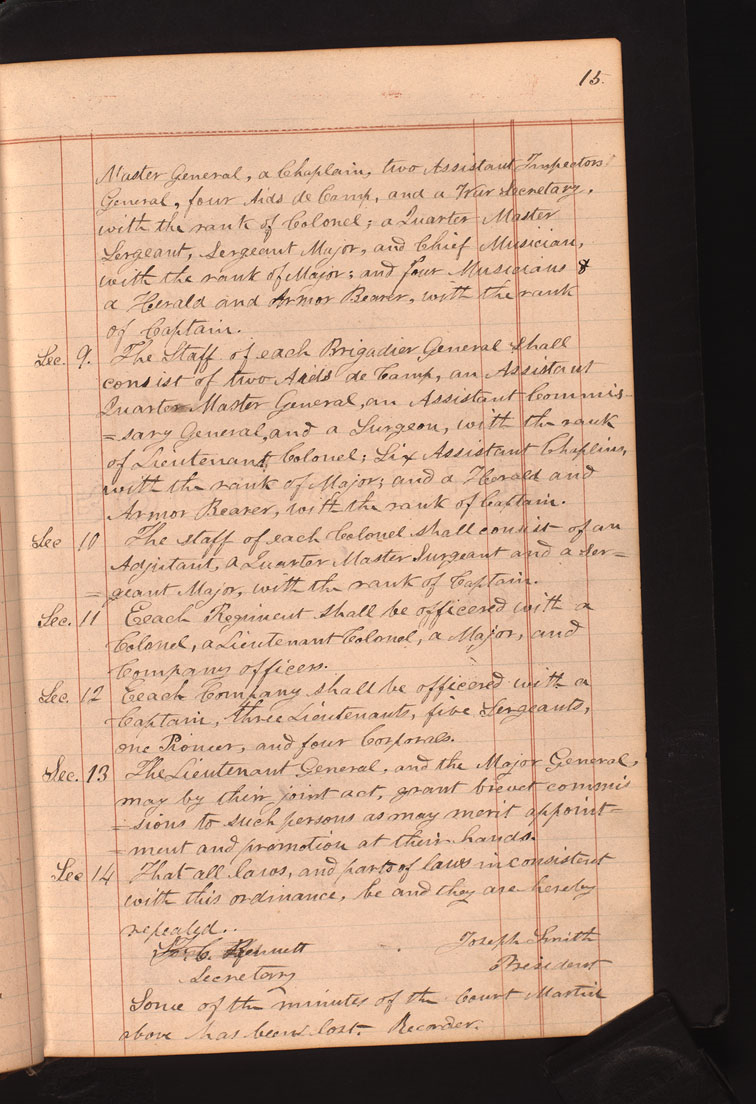 15.
Master General, a Chaplain, two Assistant Inspectors
General, four Aids de Camp, and a War Secretary,
with the rank of Colonel; a Quarter Master
Sergeant, Sergeant Major, and Chief Musician,
with the rank of Major; and four Musicians &
a Herald and Armor Bearer, with the rank
of Captain.
Sec. 9. The Staff of each Brigadier General shall
consist of two Aids de Camp, an Assistant
Quarter Master General, an Assistant Commis-
=sary General, and a Surgeon, with the rank
of Lieutenant Colonel; Six Assistant Chaplins,
with the rank of Major; and a Herald and
Armor Bearer, with the rank of Captain.
Sec 10 The staff of each Colonel shall consist of an
Adjutant, a Quarter Master Surgeant and a Ser=
=geant Major, with the rank of Captain.
Sec. 11 Eeach Regiment shall be officered with a
Colonel, a Lieutenant Colonel, a Major, and
Company officers.
Sec. 12 Eeach Company shall be officered with a
Captain, three Lieutenants, five Sergeants,
one Pioneer, and four Corporals.
Sec. 13 The Lieutenant General, and the Major General,
may by their joint act, grant brevet commis
=sions to such persons as may merit appoint=
=ment and promotion at their hands.
Sec 14 That all laws, and parts of laws inconsistent
with this ordinance, be and they are hereby
repealed..
C. Bennett Joseph Smith
Secretary President
Some of the minutes of the Court Martial
above has been lost. Recorder.